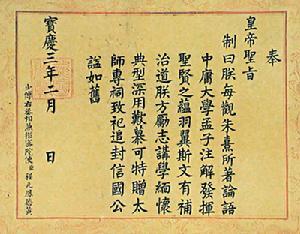 奉
皇帝聖旨
制曰朕每觀朱熹所著論語
中庸大學孟子注解發揮
聖賢之蘊羽翼斯文有補
治道朕方勵志講學緬懷
典型深用歎慕可特贈太
師專祠致祀追封信國公
謚如舊
寶慶三年二月 日